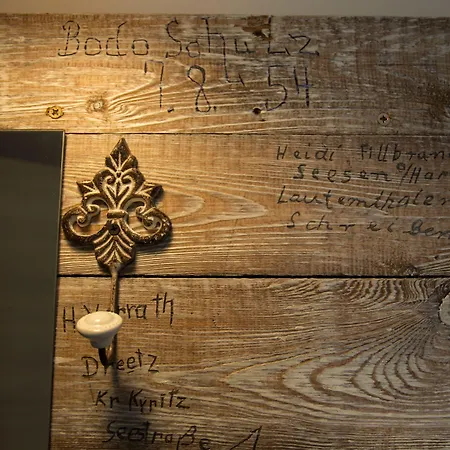 Bodo Schulz
7.8.4.54
Heidi Fillbrun
Seesen o/Har
Lautemthaler
Schreiber
H
Dreetz
Kr Kyritz
Seestraße 1